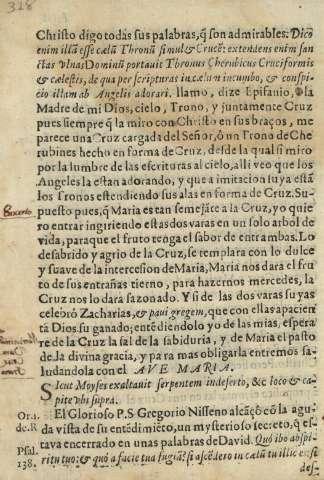 328
Christo digo todas sus palabras, q̃ son admirables: Dico
enim illã esse cælũ Thronũ simul & Crucẽ: extendens enim san
ctas vlnas Dominũ portauit Thronus Cherubicus Cruciformis
& cælestis, de qua per scripturas in cælum incumbo, & conspi
cio illam ab Angelis adorari. llamo, dize Epifanio, à la
Madre de mi Dios, cielo, Trono, y juntamente Cruz
pues siempre q̃ la miro con Christo en sus braços, me
parece vna Cruz cargada del Señor, ò vn Trono de Che
rubines hecho en forma de Cruz, desde la qual si miro
por la lumbre de las escrituras al cielo, alli veo que los
Angeles la estan adorando, y que a imitacion suya estã
los Tronos estendiendo sus alas en forma de Cruz. Su-
puesto pues, q̃ Maria es tan semejãte a la Cruz, yo quie
ro entrar ingiriendo estas dos varas en vn solo arbol de
vida, paraque el fruto tenga el sabor de entrambas. Lo
desabrido y agrio de la Cruz, se templara con lo dulce
y suaue de la intercesion de Maria, Maria nos dara el fru
to de sus entrañas tierno, para hazernos mercedes, la
Cruz nos lo dara sazonado. Y si de las dos varas suyas
celebrò Zacharias, & paui gregem, que con ellas apacien
ta Dios su ganado; entẽdiendolo yo de las mias, espera
re de la Cruz la sal de la sabiduria, y de Maria el pasto
de la diuina gracia, y para mas obligarla entremos sa-
ludandola con el AVE MARIA.
Sicut Moyses exaltauit serpentem in deserto, &c loco & ca-
pite vbi supra.
Ora.
de. R
El Glorioso P. S. Gregorio Nisseno alcãçò cõ la agu
da vista de su entẽdimiẽto, vn mysterioso secreto, q̃ es-
taua encerrado en vnas palabras de Dauid. Quò ibo à spi-
Psal.
138.
ritu tuo: & quò a facie tua fugiã? si ascẽdero in cælũ tu illic es: si
des-